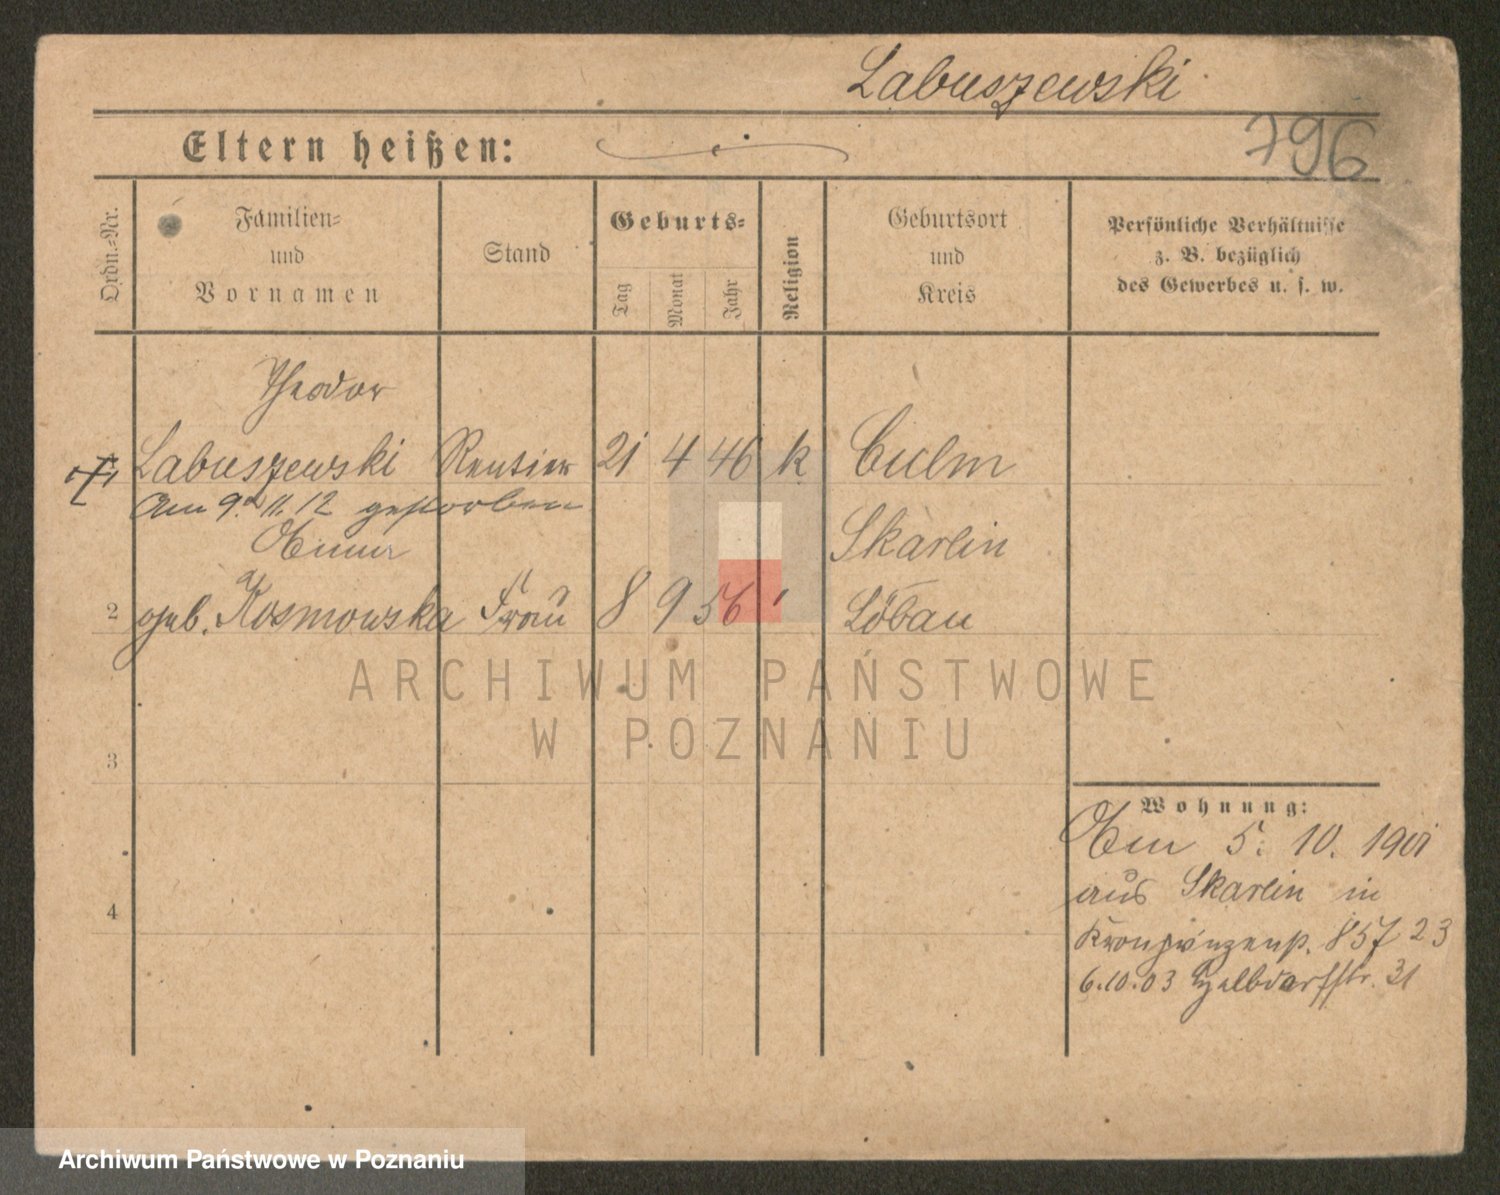 Labuszewski
796
Eltern heißen:
Ordn.=Nr.
Familien=
und
Vornamen
Stand
Geburts=
Tag
Monat
Jahr
Religion
Geburtsort
und
Kreis
Persönliche Verhältnisse
z. B. bezüglich
des Gewerbes u. s. w.
Theodor
Labuszewski Rentier 21 4 46 k Culm
Am 9. 11. 12 gestorben
Skarlin
2 geb. Kosmowska Frau 8 9 56 " Löbau
ARCHIWUM PAŃSTWOWE
W POZNANIU
3
Wohnung:
5. 10. 1901
aus Skarlin in
Kronprinzenstr. 857 23
4
6.10.03 31
Archiwum Państwowe w Poznaniu